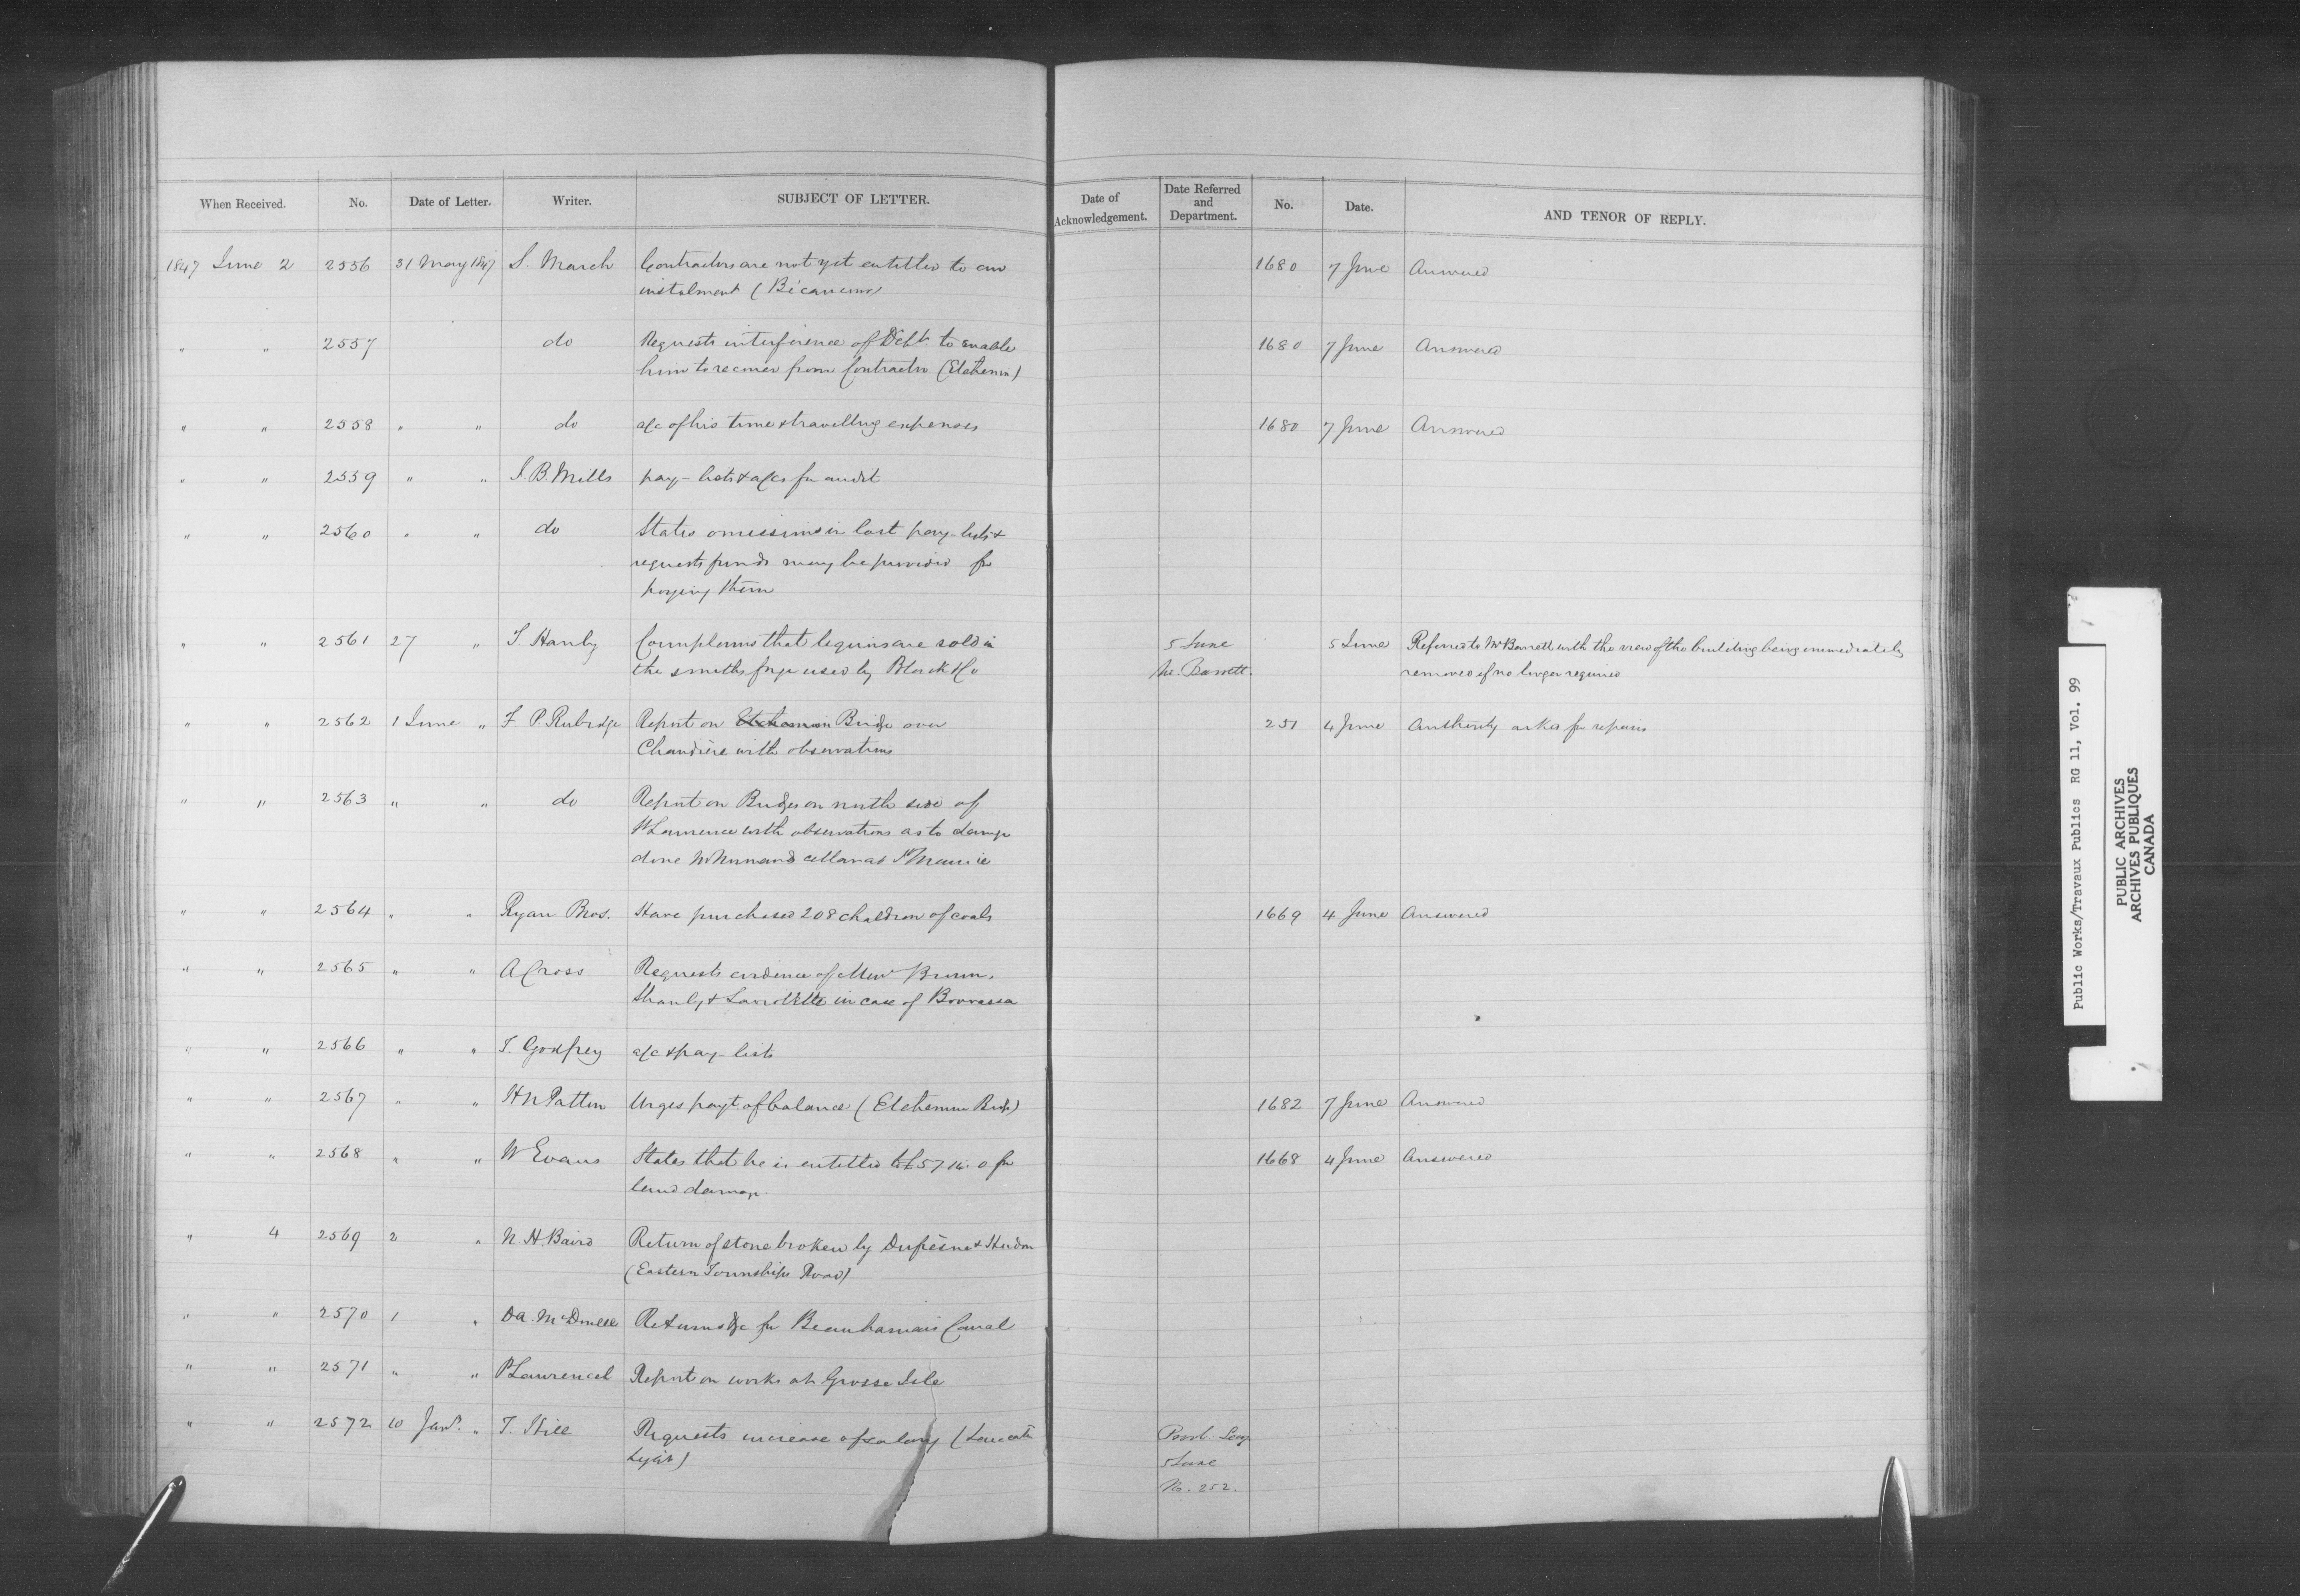 When Received. No. Date of Letter. Writer. SUBJECT OF LETTER. Date of Acknowledgement. Date Referred and Department. No. Date. AND TENOR OF REPLY.
1847 June 2 2556 31 May 1847 S. March Contractors are not yet entitled to an 1680 7 June Answered
instalment (Bécancour)
" " 2557 do Requests interference of Dept. to enable 1680 7 June Answered
him to recover from Contractor (Etchemin)
" " 2558 " " do a/c of his time & travelling expenses 1680 7 June Answered
" " 2559 " " J. B. Mills pay-lists & a/cs for audit
" " 2560 " " do States omissions in last pay-lists &
requests funds may be provided for
paying them
" " 2561 27 " T. Hanby Complains that liquors are sold in 5 June 5 June Referred to Mr Barrett with the view of the building being immediately
the smiths forge used by Black & Co Mr. Barrett. removed if no longer required
" " 2562 1 June " F. P. Rubidge Report on Etchemin Bridge over 251 4 June Authority asked for repairs
Chaudière with observations
" " 2563 " " do Report on Bridges on north side of
St Lawrence with observations as to damage
done cellar at St Maurice
" " 2564 " " Ryan Bros. Have purchased 208 chaldron of coals 1669 4 June Answered
" " 2565 " " A Cross Requests evidence of Messrs Brown,
Shanly & in case of Bourassa
" " 2566 " " T. Godfrey a/c & pay-lists
" " 2567 " " H N Patton Urges payt of balance (Etchemin Bridge) 1682 7 June Answered
" " 2568 " " W Evans States that he is entitled to £57 0 for 1668 4 June Answered
land damage.
" 4 2569 2 " N. H. Baird Return of stone broken by Dufresne &
(Eastern Townships Road)
" " 2570 1 " D A. McDonell Returns &c for Beauharnois Canal
" " 2571 " " P Lawrencel Report on works at Grosse Isle
" " 2572 10 Jany. " T. Hill Requests increase of salary ( Provl. Secy
Light) 5 June
No. 252.
Public Works/Travaux Publics RG 11, Vol. 99
PUBLIC ARCHIVES
ARCHIVES PUBLIQUES
CANADA